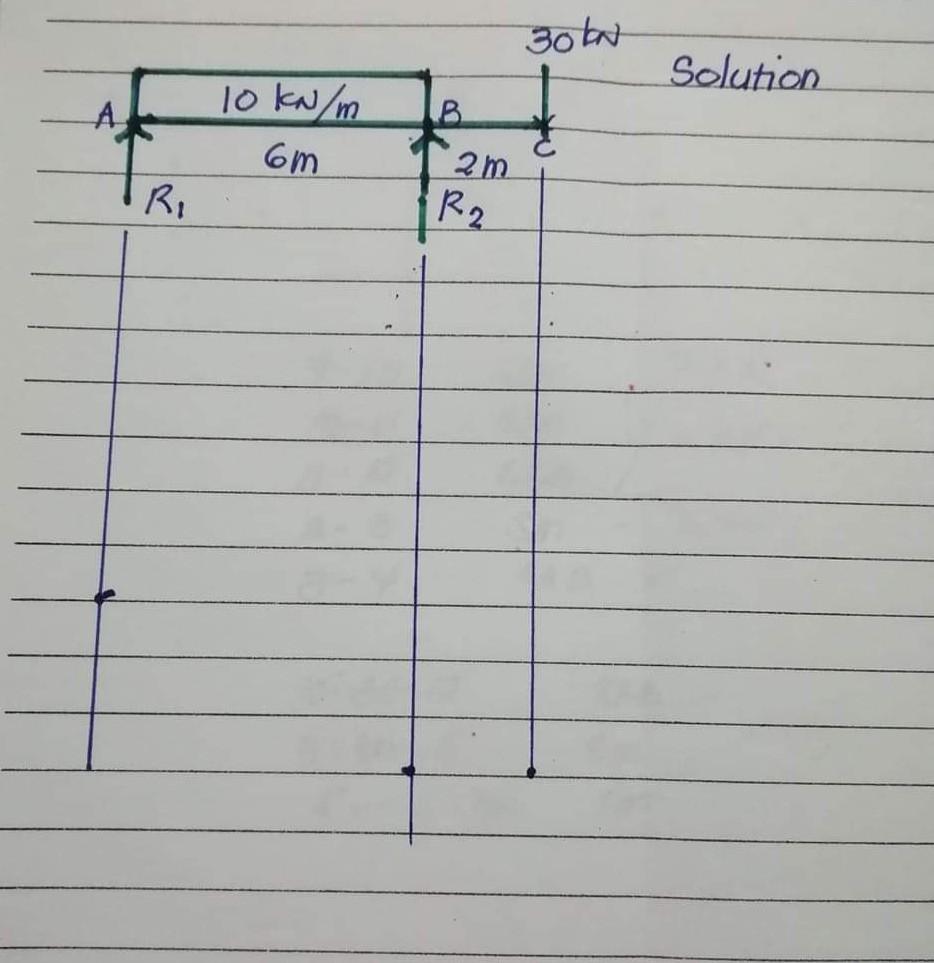 30 kN
Solution
A 10 kN/m B
C
6m 2m
R₁ R₂